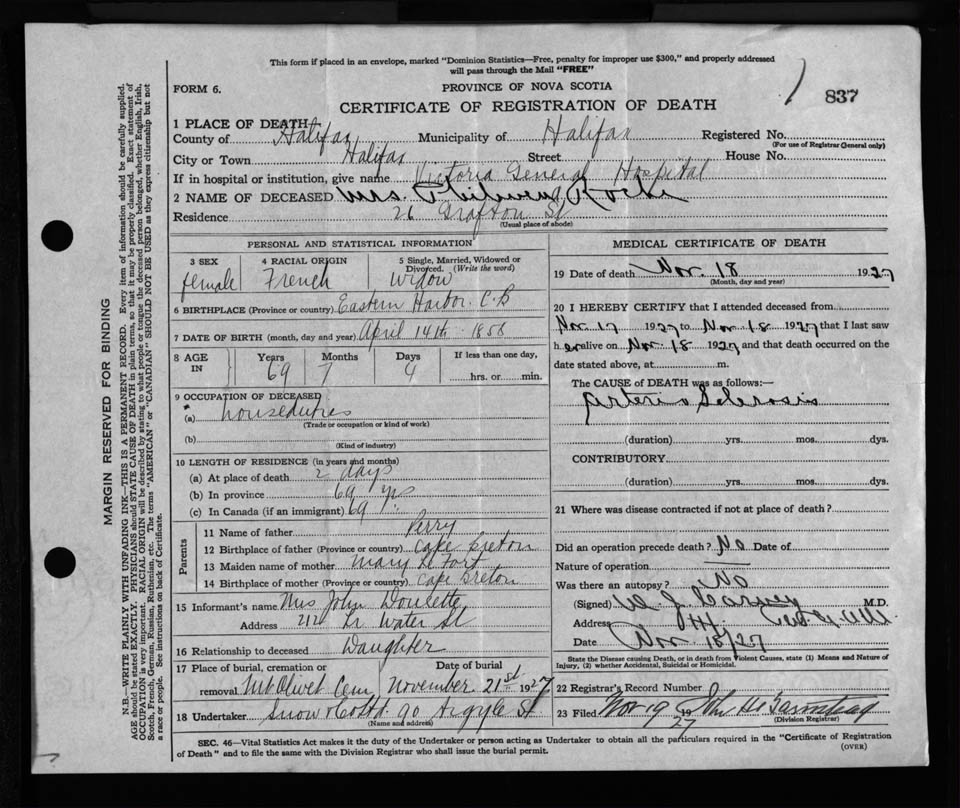 This form if placed in an envelope, marked "Dominion Statistics—Free, penalty for improper use $300," and properly addressed
will pass through the Mail "FREE"
FORM 6.
PROVINCE OF NOVA SCOTIA
837
CERTIFICATE OF REGISTRATION OF DEATH
1 PLACE OF DEATH
County of Halifax Municipality of Halifax Registered No.
(For use of Registrar General only)
City or Town Halifax Street House No.
If in hospital or institution, give name Victoria General Hospital
2 NAME OF DECEASED Mrs. Roche
Residence 26 Grafton St
(Usual place of abode)
PERSONAL AND STATISTICAL INFORMATION
3 SEX 4 RACIAL ORIGIN 5 Single, Married, Widowed or
Divorced. (Write the word)
female French Widow
6 BIRTHPLACE (Province or country) Eastern Harbor C.B
7 DATE OF BIRTH (month, day and year) April 14th 1858
8 AGE IN Years Months Days If less than one day,
69 7 4 hrs. or min.
9 OCCUPATION OF DECEASED
(a) houseduties
(Trade or occupation or kind of work)
(b)
(Kind of industry)
10 LENGTH OF RESIDENCE (in years and months)
(a) At place of death 2 days
(b) In province 69 yrs
(c) In Canada (if an immigrant) 69 Y.
Parents
11 Name of father Perry
12 Birthplace of father (Province or country) Cape Breton
13 Maiden name of mother Mary Le Fort
14 Birthplace of mother (Province or country) Cape Breton
15 Informant's name Mrs John Doulette
Address 212 Lr Water St
16 Relationship to deceased Daughter
17 Place of burial, cremation or Date of burial
removal Mt Olivet Cem November 21st 1927
18 Undertaker Snow & Co Ltd 90 Argyle St
MEDICAL CERTIFICATE OF DEATH
19 Date of death Nov. 18 1927
(Month, day and year)
20 I HEREBY CERTIFY that I attended deceased from
Nov 17 1927 to Nov 18 1927 that I last saw
her alive on Nov. 18 1927 and that death occurred on the
date stated above, at m.
The CAUSE of DEATH was as follows:—
Arterio Sclerosis
(duration) yrs. mos. dys.
CONTRIBUTORY
(duration) yrs. mos. dys.
21 Where was disease contracted if not at place of death?
Did an operation precede death? No Date of
Nature of operation
Was there an autopsy? No
(Signed) M.D.
Address
Date Nov 18/27
State the Disease causing Death, or in death from Violent Causes, state (1) Means and Nature of
Injury, (2) whether Accidental, Suicidal or Homicidal.
22 Registrar's Record Number
23 Filed Nov 19 27 John
(Division Registrar)
SEC. 46—Vital Statistics Act makes it the duty of the Undertaker or person acting as Undertaker to obtain all the particulars required in the "Certificate of Registration
of Death" and to file the same with the Division Registrar who shall issue the burial permit.
(OVER)
MARGIN RESERVED FOR BINDING
N.B.—WRITE PLAINLY WITH UNFADING INK—THIS IS A PERMANENT RECORD. Every item of information should be carefully supplied.
AGE should be stated EXACTLY. PHYSICIANS should STATE CAUSE OF DEATH in plain terms, so that it may be properly classified. Exact statement of
OCCUPATION is very important. RACIAL ORIGIN will be described by stating to what people or tongue the deceased person belonged, whether English, Irish,
Scotch, French, German, Russian, Ruthenian, etc. The terms "AMERICAN" or "CANADIAN" SHOULD NOT BE USED as they express citizenship but not
a race or people. See instructions on back of Certificate.